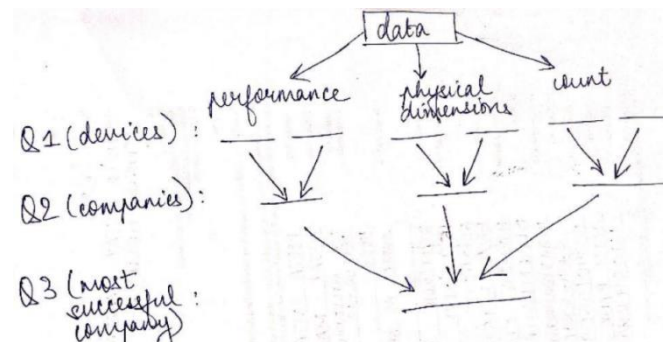 data
performance
physical
dimensions
count
Q1 (devices) :
Q2 (companies) :
Q3 (most
successful :
company)